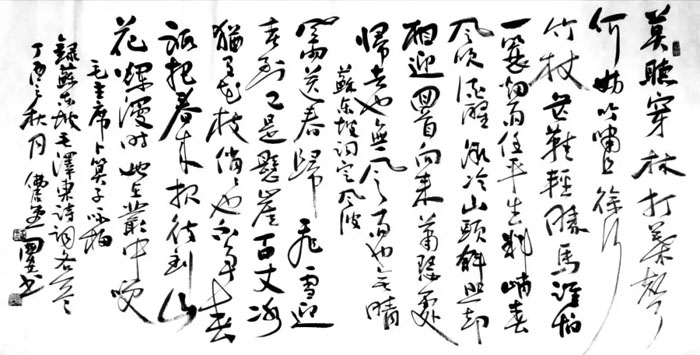 莫聽穿林打葉聲
何妨吟嘯且徐行
竹杖芒鞋輕勝馬誰怕
一蓑烟雨任平生料峭春
風吹酒醒微冷山頭斜照却
相迎回首向来蕭瑟處
歸去也無風雨也無晴
蘇东坡词定风波
風雨送春歸飛雪迎
春到已是懸崖百丈冰
猶有花枝俏也不争春
祇把春来报待到山
花爛漫时她在叢中笑
毛主席卜算子咏梅
錄蘇东坡毛澤東诗词各一首
丁酉之秋月書